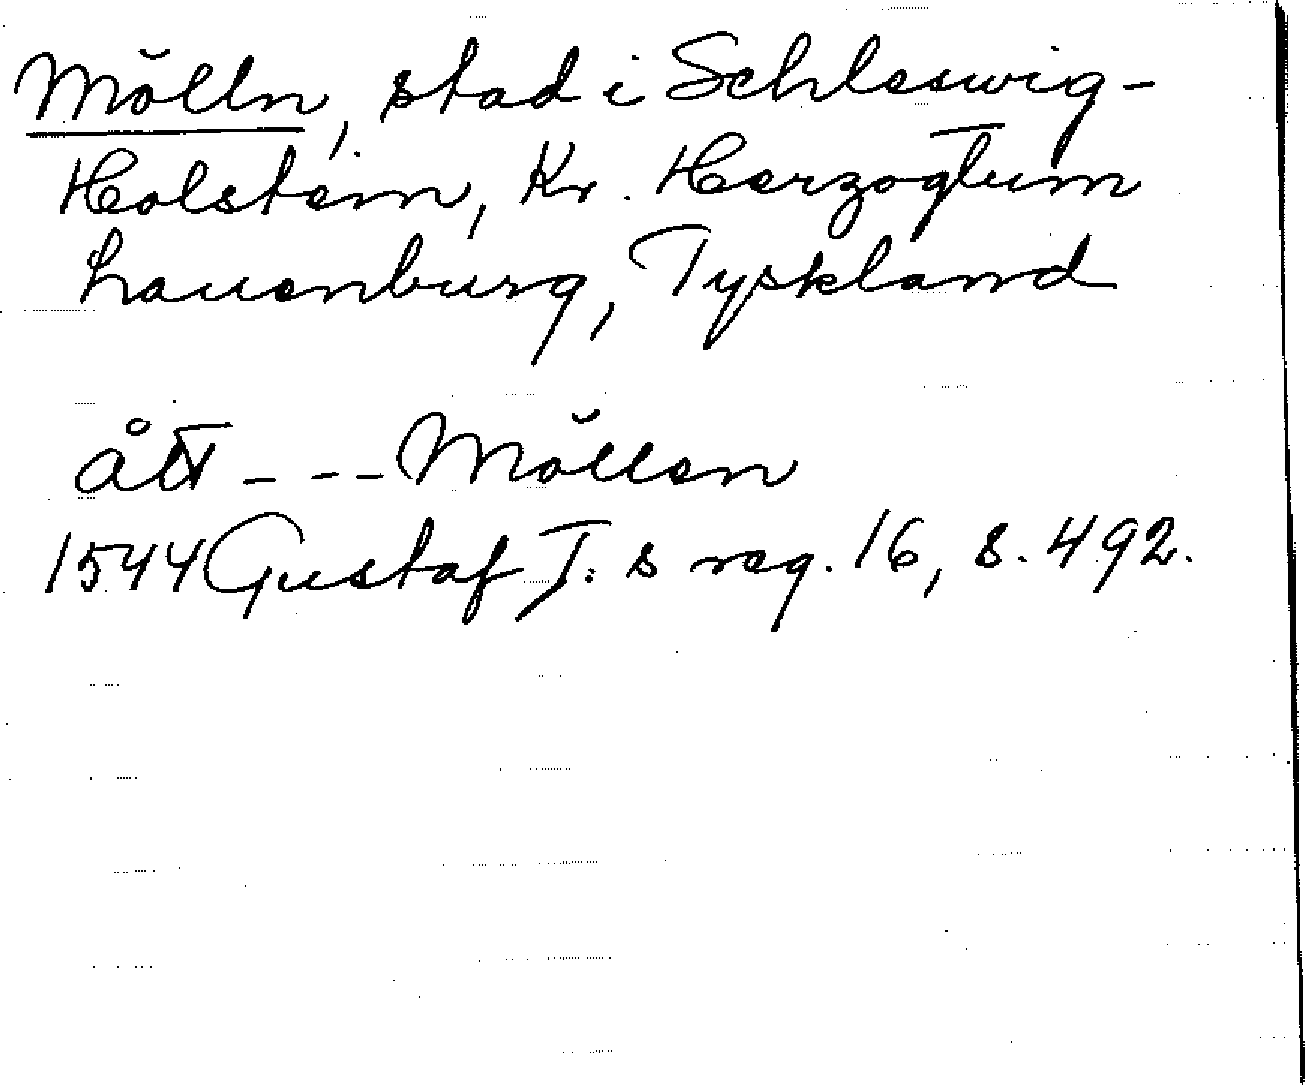 Mölln, stad i Schleswig-
Holstein, Kr. Herzogtum
Lauenburg, Tyskland
ått --- Möllen
1544 Gustaf I:s reg. 16, s. 492.